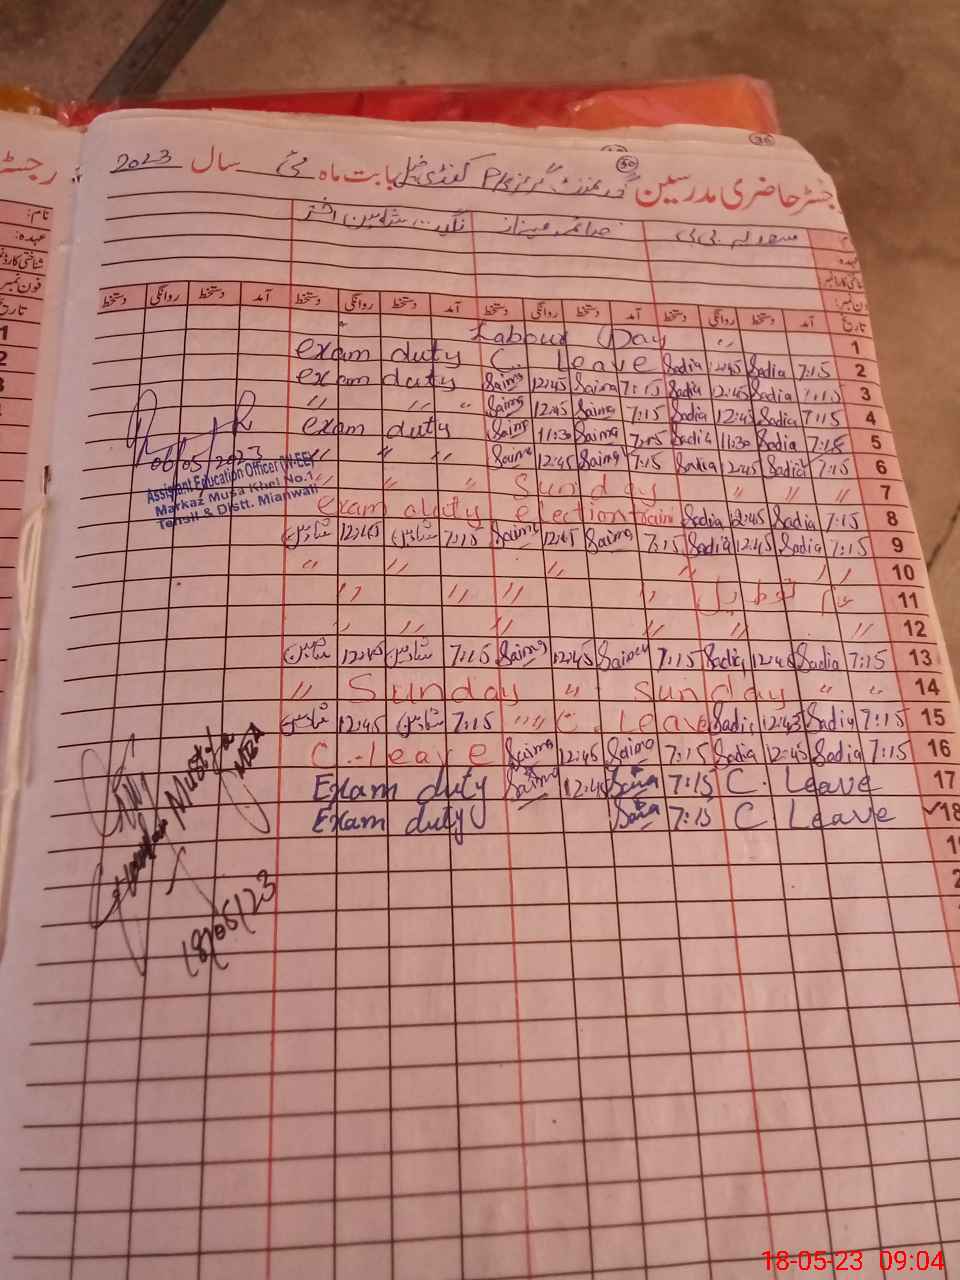 رجسٹر حاضری مدرسین گورنمنٹ گرلز P/S کنڈی بابت ماہ مئی سال 2023
30
سعدیہ بی بی صائمہ نگہت شاہین اختر
تاریخ آمد دستخط روانگی دستخط آمد دستخط روانگی دستخط آمد دستخط روانگی دستخط آمد دستخط روانگی دستخط
Labour Day 1
exam duty C. Leave Sadia 12:45 Sadia 7:15 2
exam duty Saima 12:45 Saima 7:15 Sadia 12:45 Sadia 7:15 3
" " " Saima 12:45 Saima 7:15 Sadia 12:45 Sadia 7:15 4
exam duty Saima 11:30 Saima 7:15 Sadia 11:30 Sadia 7:15 5
" " " Saima 12:45 Saima 7:15 Sadia 12:45 Sadia 7:15 6
" " " Sunday " " " 7
exam duty election Sadia 12:45 Sadia 7:15 8
شاہین 12:45 شاہین 7:15 Saima 12:45 Saima 7:15 Sadia 12:45 Sadia 7:15 9
" " " " " 10
" " " " عام تعطیل 11
" " " " " " 12
شاہین 12:45 شاہین 7:15 Saima 12:45 Saima 7:15 Sadia 12:45 Sadia 7:15 13
" Sunday " Sunday " " 14
شاہین 12:45 شاہین 7:15 " " C. Leave Sadia 12:45 Sadia 7:15 15
C. leave Saima 12:45 Saima 7:15 Sadia 12:45 Sadia 7:15 16
Exam duty Saima 12:45 Saima 7:15 C. Leave 17
Exam duty Saima 7:15 C Leave 18
06/05/2023
Assistant Education Officer (W-EE)
Markaz Musa Khel No.1
Tehsil & Distt. Mianwali
Mustafa
18/05/23
نام:
عہدہ:
فون نمبر
تاریخ
1
2
3
18-05-23 09:04